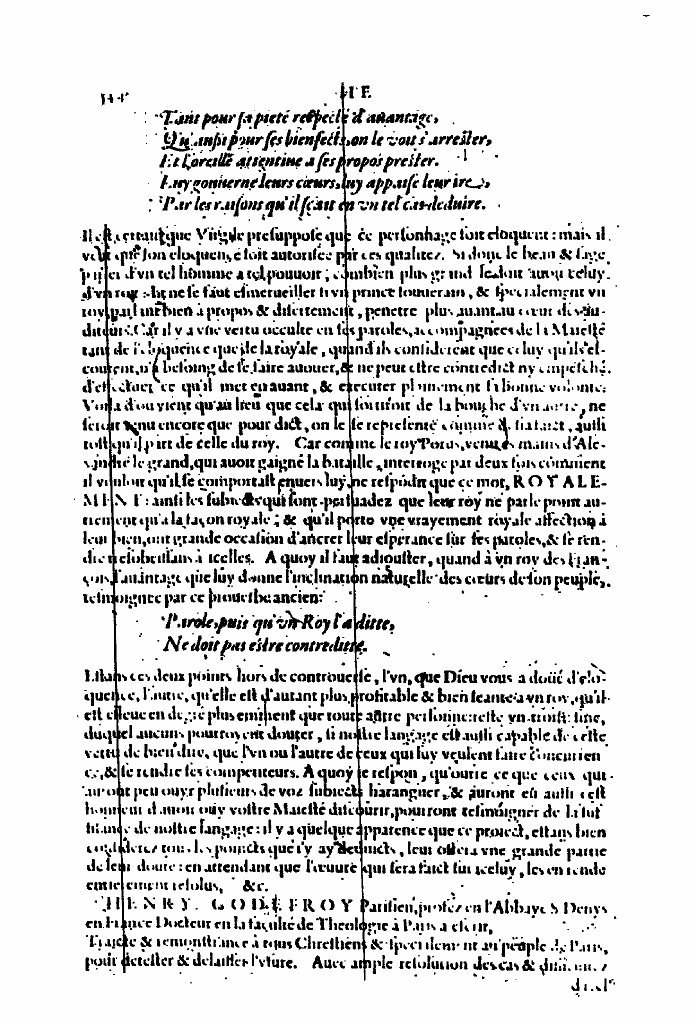 HE
Tant pour sa pieté respecté d'auantage,
Qu'aussi pour ses bienfects, on le voit s'arrester,
Et l'oreille attentiue a ses propos prester.
Luy gouuerne leurs cœurs, luy appaise leur ire,
Par les raisons qu'il sçait en vn tel cas deduire.
Il est certain que Virgile presuppose que ce personnage soit eloquent: mais il
veut que son eloquence soit autorisée par ces qualitez. Si donc le beau & sage
parler d'vn tel homme a tel pouuoir, combien plus grand sera celuy
d'vn roy: & ne se faut esmerueiller si vn prince souuerain, & specialement vn
roy, parlant bien à propos & disertement, penetre plus auant au cœur des au-
diteurs. Car il y a vne vertu occulte en ses paroles, accompagnées de la Maiesté
tant de l'eloquence que de la royale, quand ils considerent que celuy qu'ils es-
coutent, n'a besoing de se faire auouer, & ne peut estre contredict ny empesché
d'effectuer ce qu'il met en auant, & executer plainement sa bonne volonté.
Voila d'ou vient qu'au lieu que cela qui sortiroit de la bouche d'vn autre, ne
seroit tenu encore que pour dict, on le se represente comme estant faict, aussi
tost qu'il part de celle du roy. Car comme le roy Porus, venu es mains d'Ale-
xandre le grand, qui auoit gaigné la bataille, interrogé par deux fois comment
il vouloit qu'il se comportast enuers luy, ne respōdit que ce mot, ROYALE-
MENT: ainsi les subiects qui sont persuadez que leur roy ne parle point au-
trement qu'a la façon royale; & qu'il porte vne vrayement royale affection à
leur bien, ont grande occasion d'ancrer leur esperance sur ses paroles, & se ren-
dre obeissans à icelles. A quoy il faut adiouster, quand à vn roy des Fran-
çois, l'auantage que luy donne l'inclination naturelle des cœurs de son peuple,
tesmoignée par ce prouerbe ancien:
Parole, puis qu'vn Roy l'a ditte,
Ne doit pas estre contreditte.
Estans ces deux points hors de controuerse, l'vn, que Dieu vous a doué d'elo-
quence, l'autre, qu'elle est d'autant plus profitable & bien seante a vn roy, qu'il
est esleue en degré plus eminent que toute autre personne: reste vn troisiesme,
duquel aucuns pourroyent douter, si nostre langage est aussi capable de ceste
vertu de bien dire, que l'vn ou l'autre de ceux qui luy veulent faire concurren
ce, & se rendre ses competiteurs. A quoy ie respon, qu'outre ce que ceux qui
auront peu ouyr plusieurs de voz subiects haranguer, & auront eu aussi cest
honneur d'auoir ouy vostre Maiesté discourir, pourront tesmoigner de la suf
fisance de nostre langage: il y a quelque apparence que ce proiect, estans bien
considerez tous les poincts que i'y ay deduicts, leur ostera vne grande partie
de leur doute: en attendant que l'œuure qui sera faict sur iceluy, les en rende
entierement resolus, &c.
HENRY GODEFROY Parisien, profez en l'Abbaye S Denys
en France Docteur en la faculté de Theologie à Paris a escrit,
Traicté & remonstrance à tous Chrestiens & specialement au peuple de Paris,
pour detester & delaisser l'vsure. Auec ample resolution des cas &